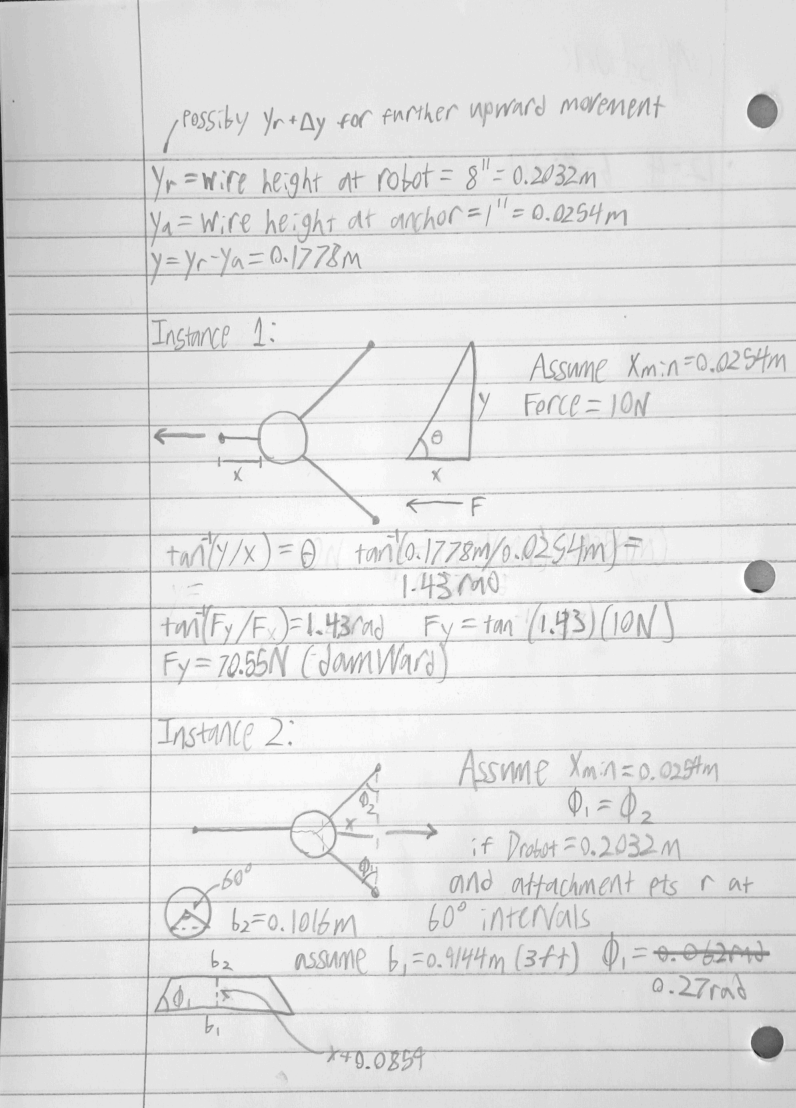 possiby yr+Δy for further upward movement
Yr = wire height at robot = 8" = 0.2032m
Ya = wire height at anchor = 1" = 0.0254m
y = yr - ya = 0.1778m
Instance 1:
Assume Xmin = 0.0254m
Force = 10N
y
θ
x
x
F
tan⁻¹(y/x) = θ tan⁻¹(0.1778m/0.0254m) =
1.43 rad
tan⁻¹(Fy/Fx) = 1.43rad Fy = tan (1.43)(10N)
Fy = 70.55N (downward)
Instance 2:
Assume Xmin = 0.0254m
Φ₁ = Φ₂
Φ₂
x
Φ₁
if Drobot = 0.2032m
and attachment pts r at
60° intervals
60°
b₂ = 0.1016m
assume b₁ = 0.9144m (3ft) Φ₁ = 0.062rad
0.27rad
b₂
Φ₁
x
b₁
x+0.0854